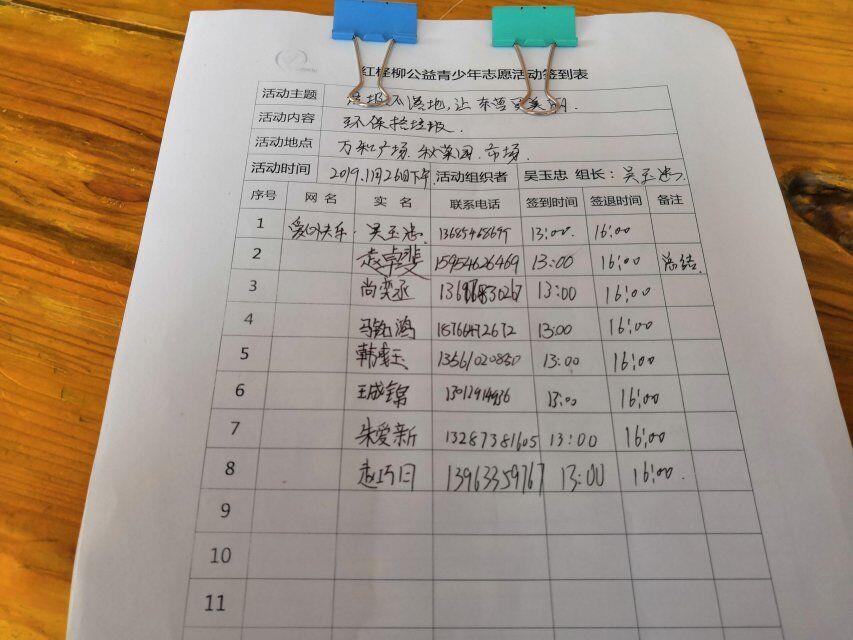 红柽柳公益青少年志愿活动签到表
活动主题 垃圾不落地,让东营更美丽.
活动内容 环保捡垃圾.
活动地点 万和广场.秋菜园.市场.
活动时间 2019.11月26日下午. 活动组织者 吴玉忠 组长:吴玉忠.
序号 网 名 实 名 联系电话 签到时间 签退时间 备注
1 吴玉忠. 13:00. 16:00
2 赵卓斐 15954626469 13:00 16:00 总结.
3 尚奕丞 13:00 16:00
4 13:00 16:00
5 13561020830 13:00 16:00
6 王成锦 13:00 16:00
7 朱爱新 13287381605 13:00 16:00
8 赵巧日 13963359767 13:00 16:00.
9
10
11